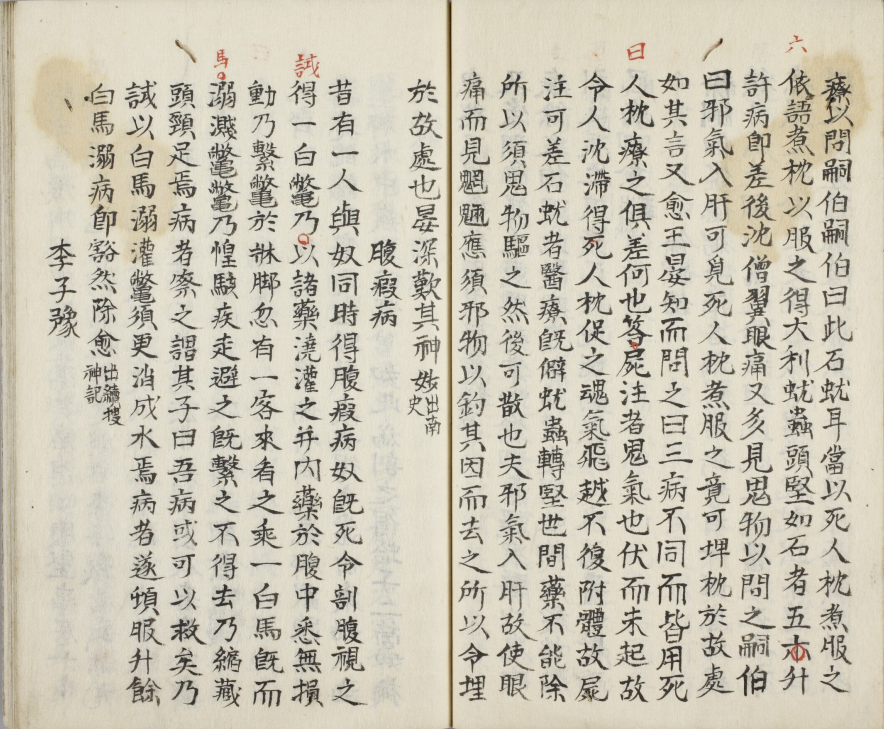 療以問嗣伯嗣伯曰此石蚘耳當以死人枕煮服之
依語煮枕以服之得大利蚘蟲頭堅如石者五六升
六
許病即差後沈僧翼眼痛又多見鬼物以問之嗣伯
曰邪氣入肝可覓死人枕煮服之竟可埋枕於故處
如其言又愈王晏知而問之曰三病不同而皆用死
人枕療之俱差何也答尸注者鬼氣也伏而未起故
曰
令人沈滯得死人枕促之魂氣飛越不復附體故屍
注可差石蚘者醫療既僻蚘蟲轉堅世間藥不能除
所以須鬼物驅之然後可散也夫邪氣入肝故使眼
痛而見魍魎應須邪物以釣其因而去之所以令埋
於故處也晏深歎其神妙出南史
腹瘕病
昔有一人與奴同時得腹瘕病奴既死令剖腹視之
得一白鼈乃以諸藥澆灌之并內藥於腹中悉無損
試
動乃繫鼈於牀脚忽有一客來看之乘一白馬既而
溺濺鼈鼈乃惶駭疾走避之既繫之不得去乃縮藏
馬
頭頸足焉病者察之謂其子曰吾病或可以救矣乃
試以白馬溺灌鼈須更消成水焉病者遂頓服升餘
白馬溺病即豁然除愈出續搜神記
李子豫